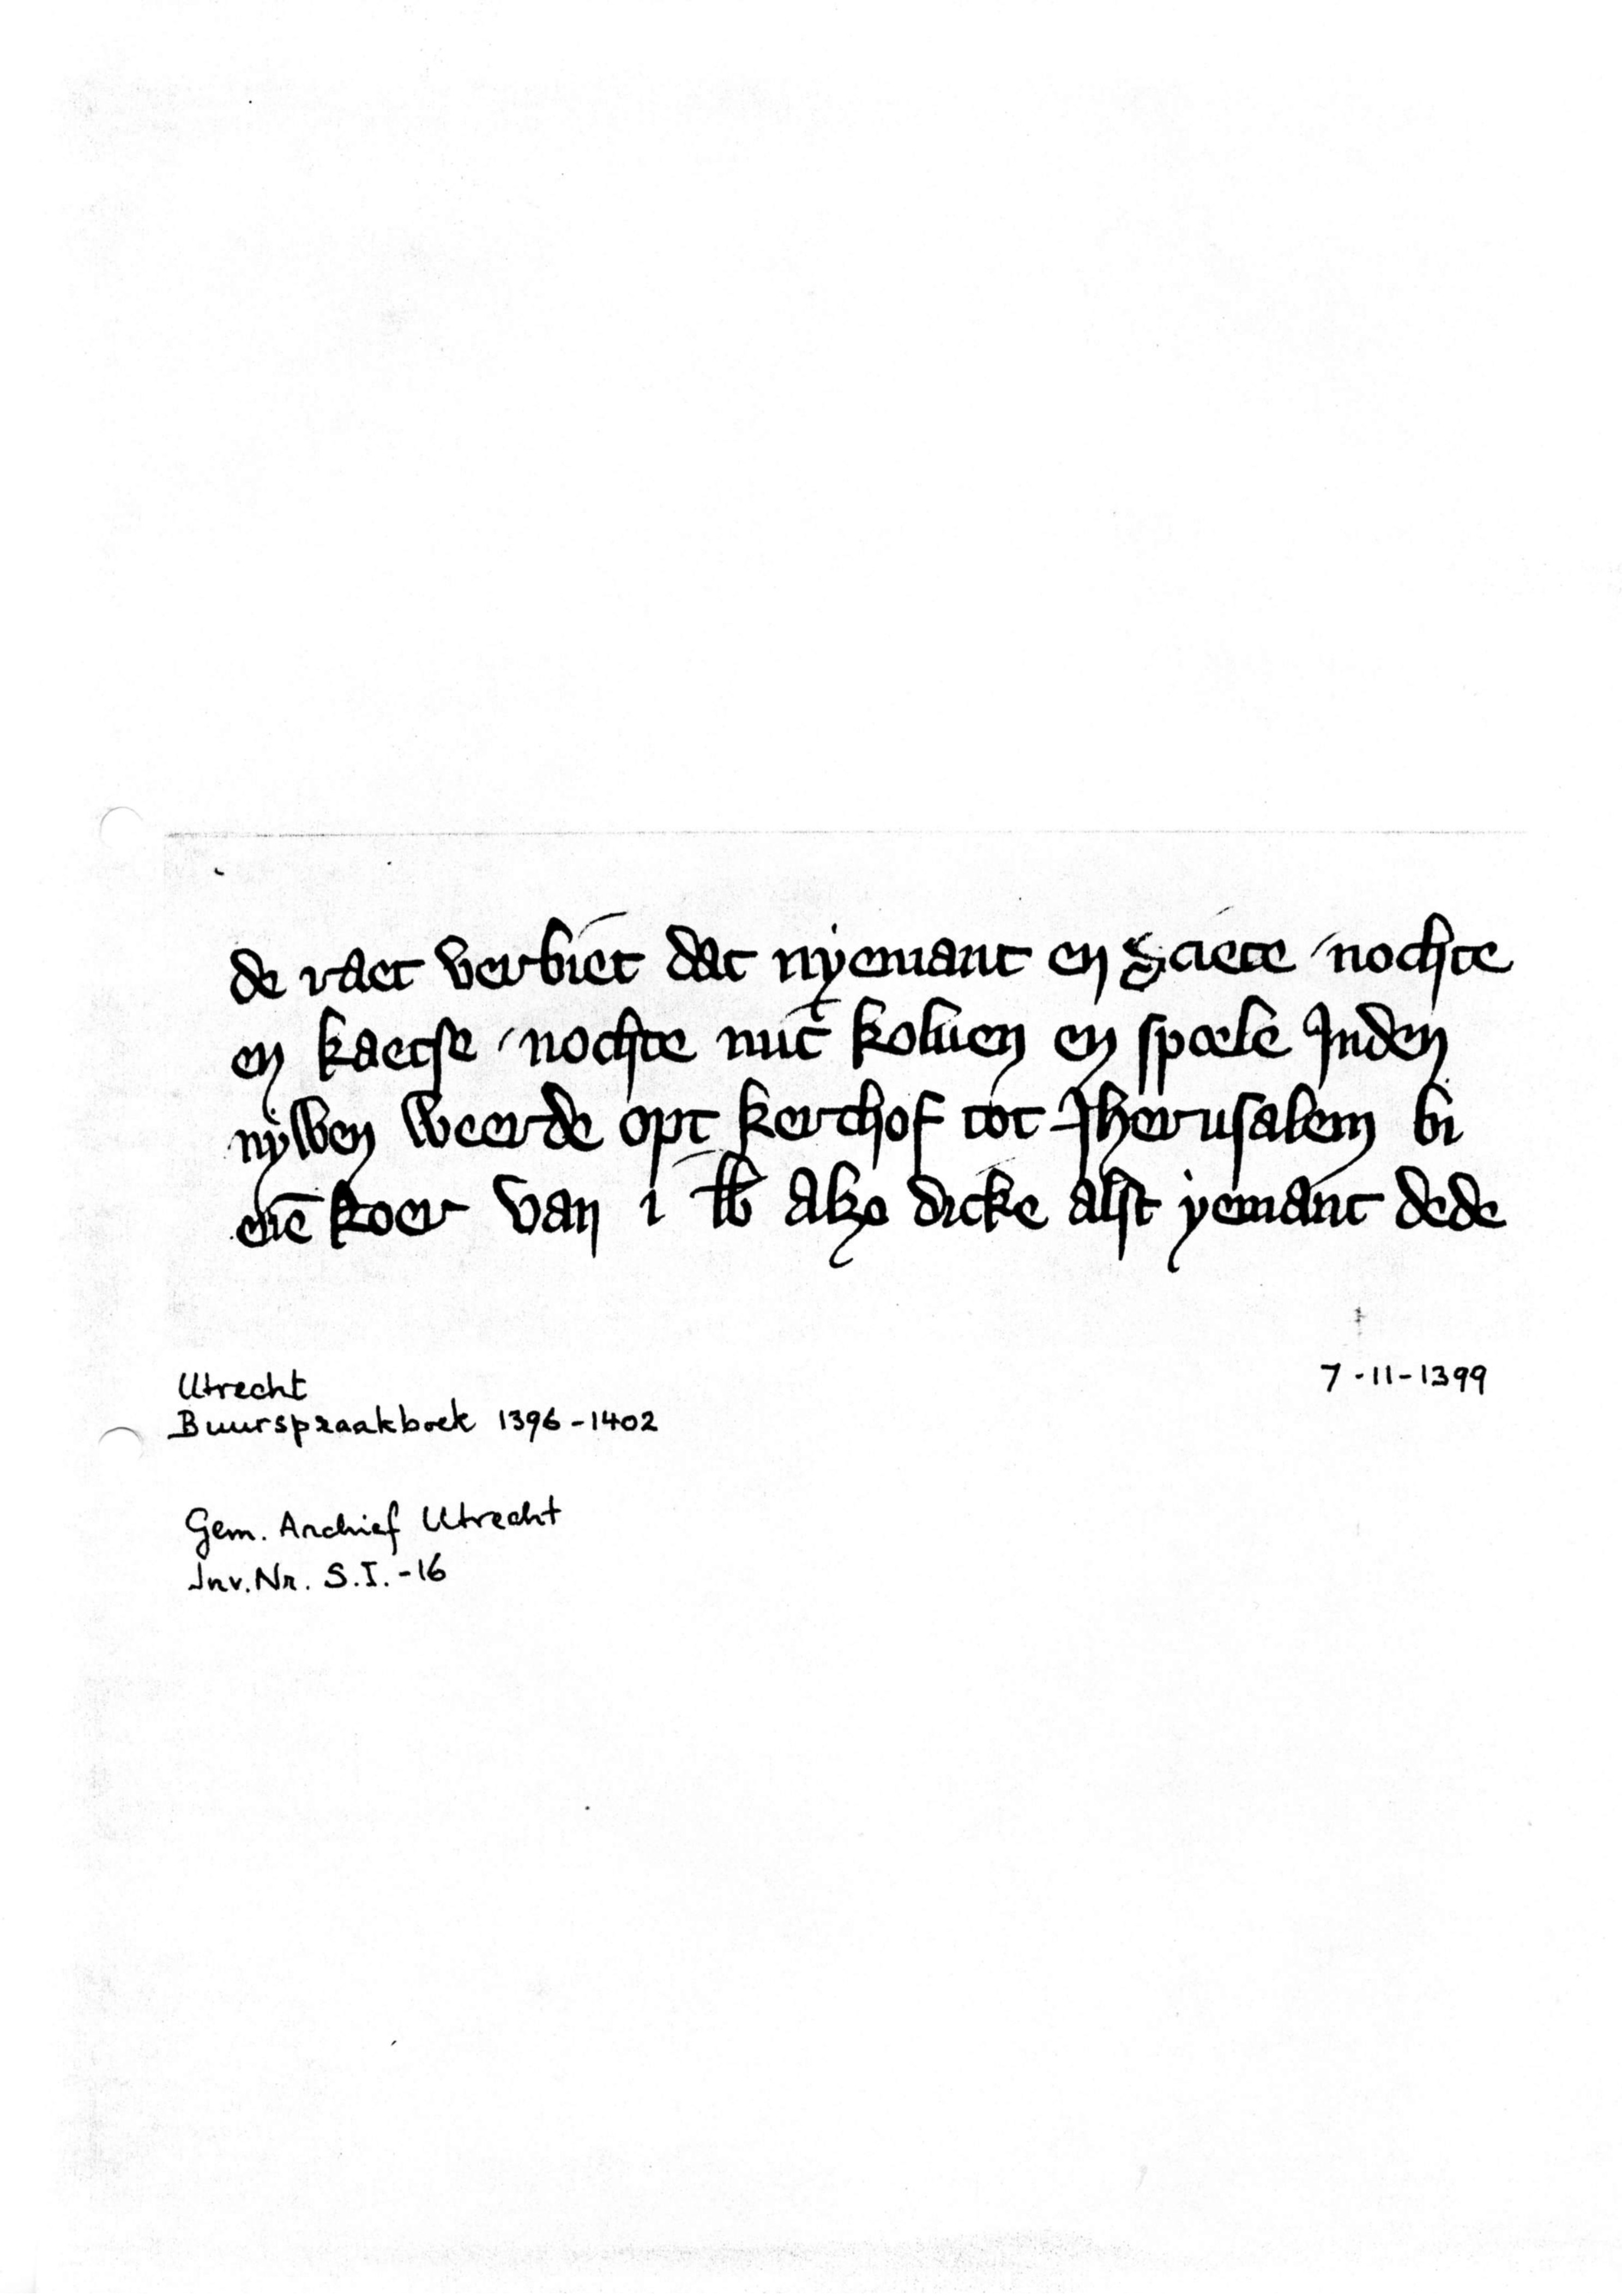 de raet verbiet dat nyemant en sciete / nochte
en kaetse / nochte mit̄ koluen en spoele Inden
nywen weerde opt kerchof tot Jherusalem bi
enē koer van i lb alzo dicke alst yemant dede
Utrecht
Buurspraakboek 1396-1402
7-11-1399
Gem. Archief Utrecht
Inv. Nr. S.I.-16